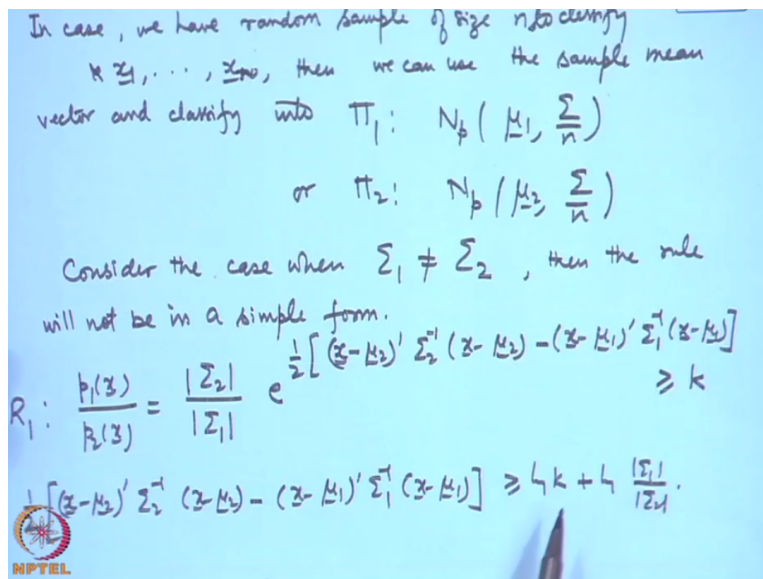 In case, we have random sample of size n to classify
x x̲1, ..., x̲n, then we can use the sample mean
vector and classify into Π1: Np(μ̲1, Σ/n)
or Π2: Np(μ̲2, Σ/n)
Consider the case when Σ1 ≠ Σ2, then the rule
will not be in a simple form.
R1: p1(x̲)/p2(x̲) = |Σ2|/|Σ1| e^{1/2[(x̲-μ̲2)' Σ2^{-1} (x̲-μ̲2) - (x̲-μ̲1)' Σ1^{-1} (x̲-μ̲1)]} ≥ k
[(x̲-μ̲2)' Σ2^{-1} (x̲-μ̲2) - (x̲-μ̲1)' Σ1^{-1} (x̲-μ̲1)] ≥ ln k + ln |Σ1|/|Σ2|.
NPTEL